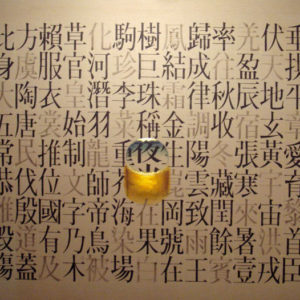 北方賴草化駒樹鳳歸率羌伏垂
身虞服官河珍巨結成往盈天
大陶衣皇潛李珠霜律秋辰地平
五唐裳始羽菜稱金調收宿玄章
常民推制龍重夜生陽冬張黃愛
恭伐位文師芥崑雲藏寒育
惟殷國字帝海在岡致閏來宙黎
毀道有乃鳥染果號雨餘暑洪首
傷蓋及木被場白在王賓壹戎臣